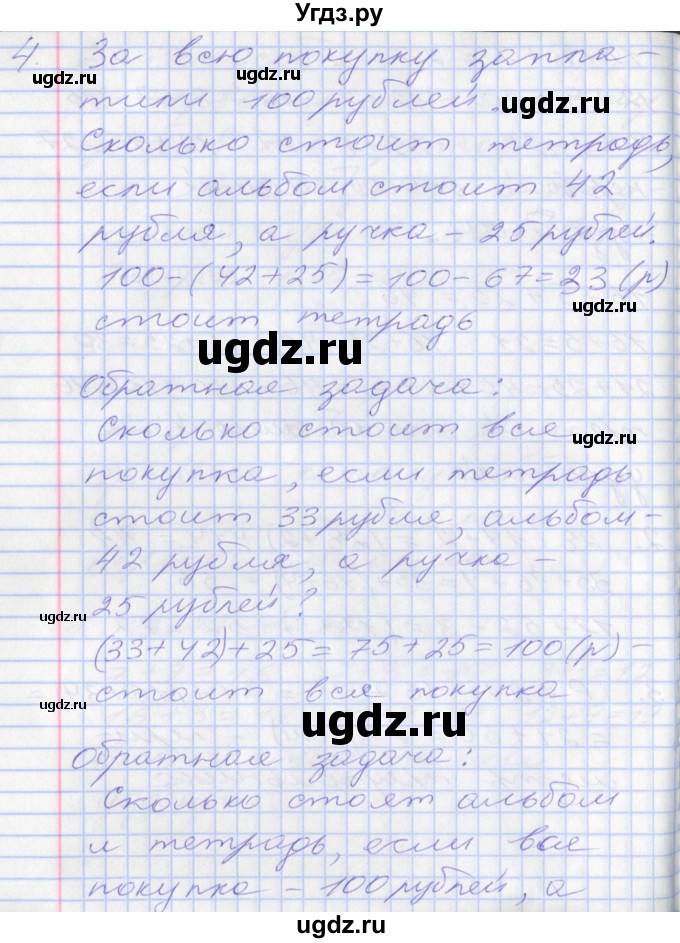 Угдз.ру
4. За всю покупку запла-
тили 100 рублей.
Сколько стоит тетрадь,
если альбом стоит 42
рубля, а ручка - 25 рублей.
100-(42+25)=100-67=33(р)
стоит тетрадь
Обратная задача:
Сколько стоит вся
покупка, если тетрадь
стоит 33 рубля, альбом-
42 рубля, а ручка -
25 рублей?
(33+42)+25=75+25=100(р)-
стоит вся покупка
Обратная задача:
Сколько стоят альбом
и тетрадь, если вся
покупка - 100 рублей, а
ugdz.ru
ugdz.ru
ugdz.ru
ugdz.ru
ugdz.ru
ugdz.ru
ugdz.ru
ugdz.ru
ugdz.ru
ugdz.ru
ugdz.ru
ugdz.ru